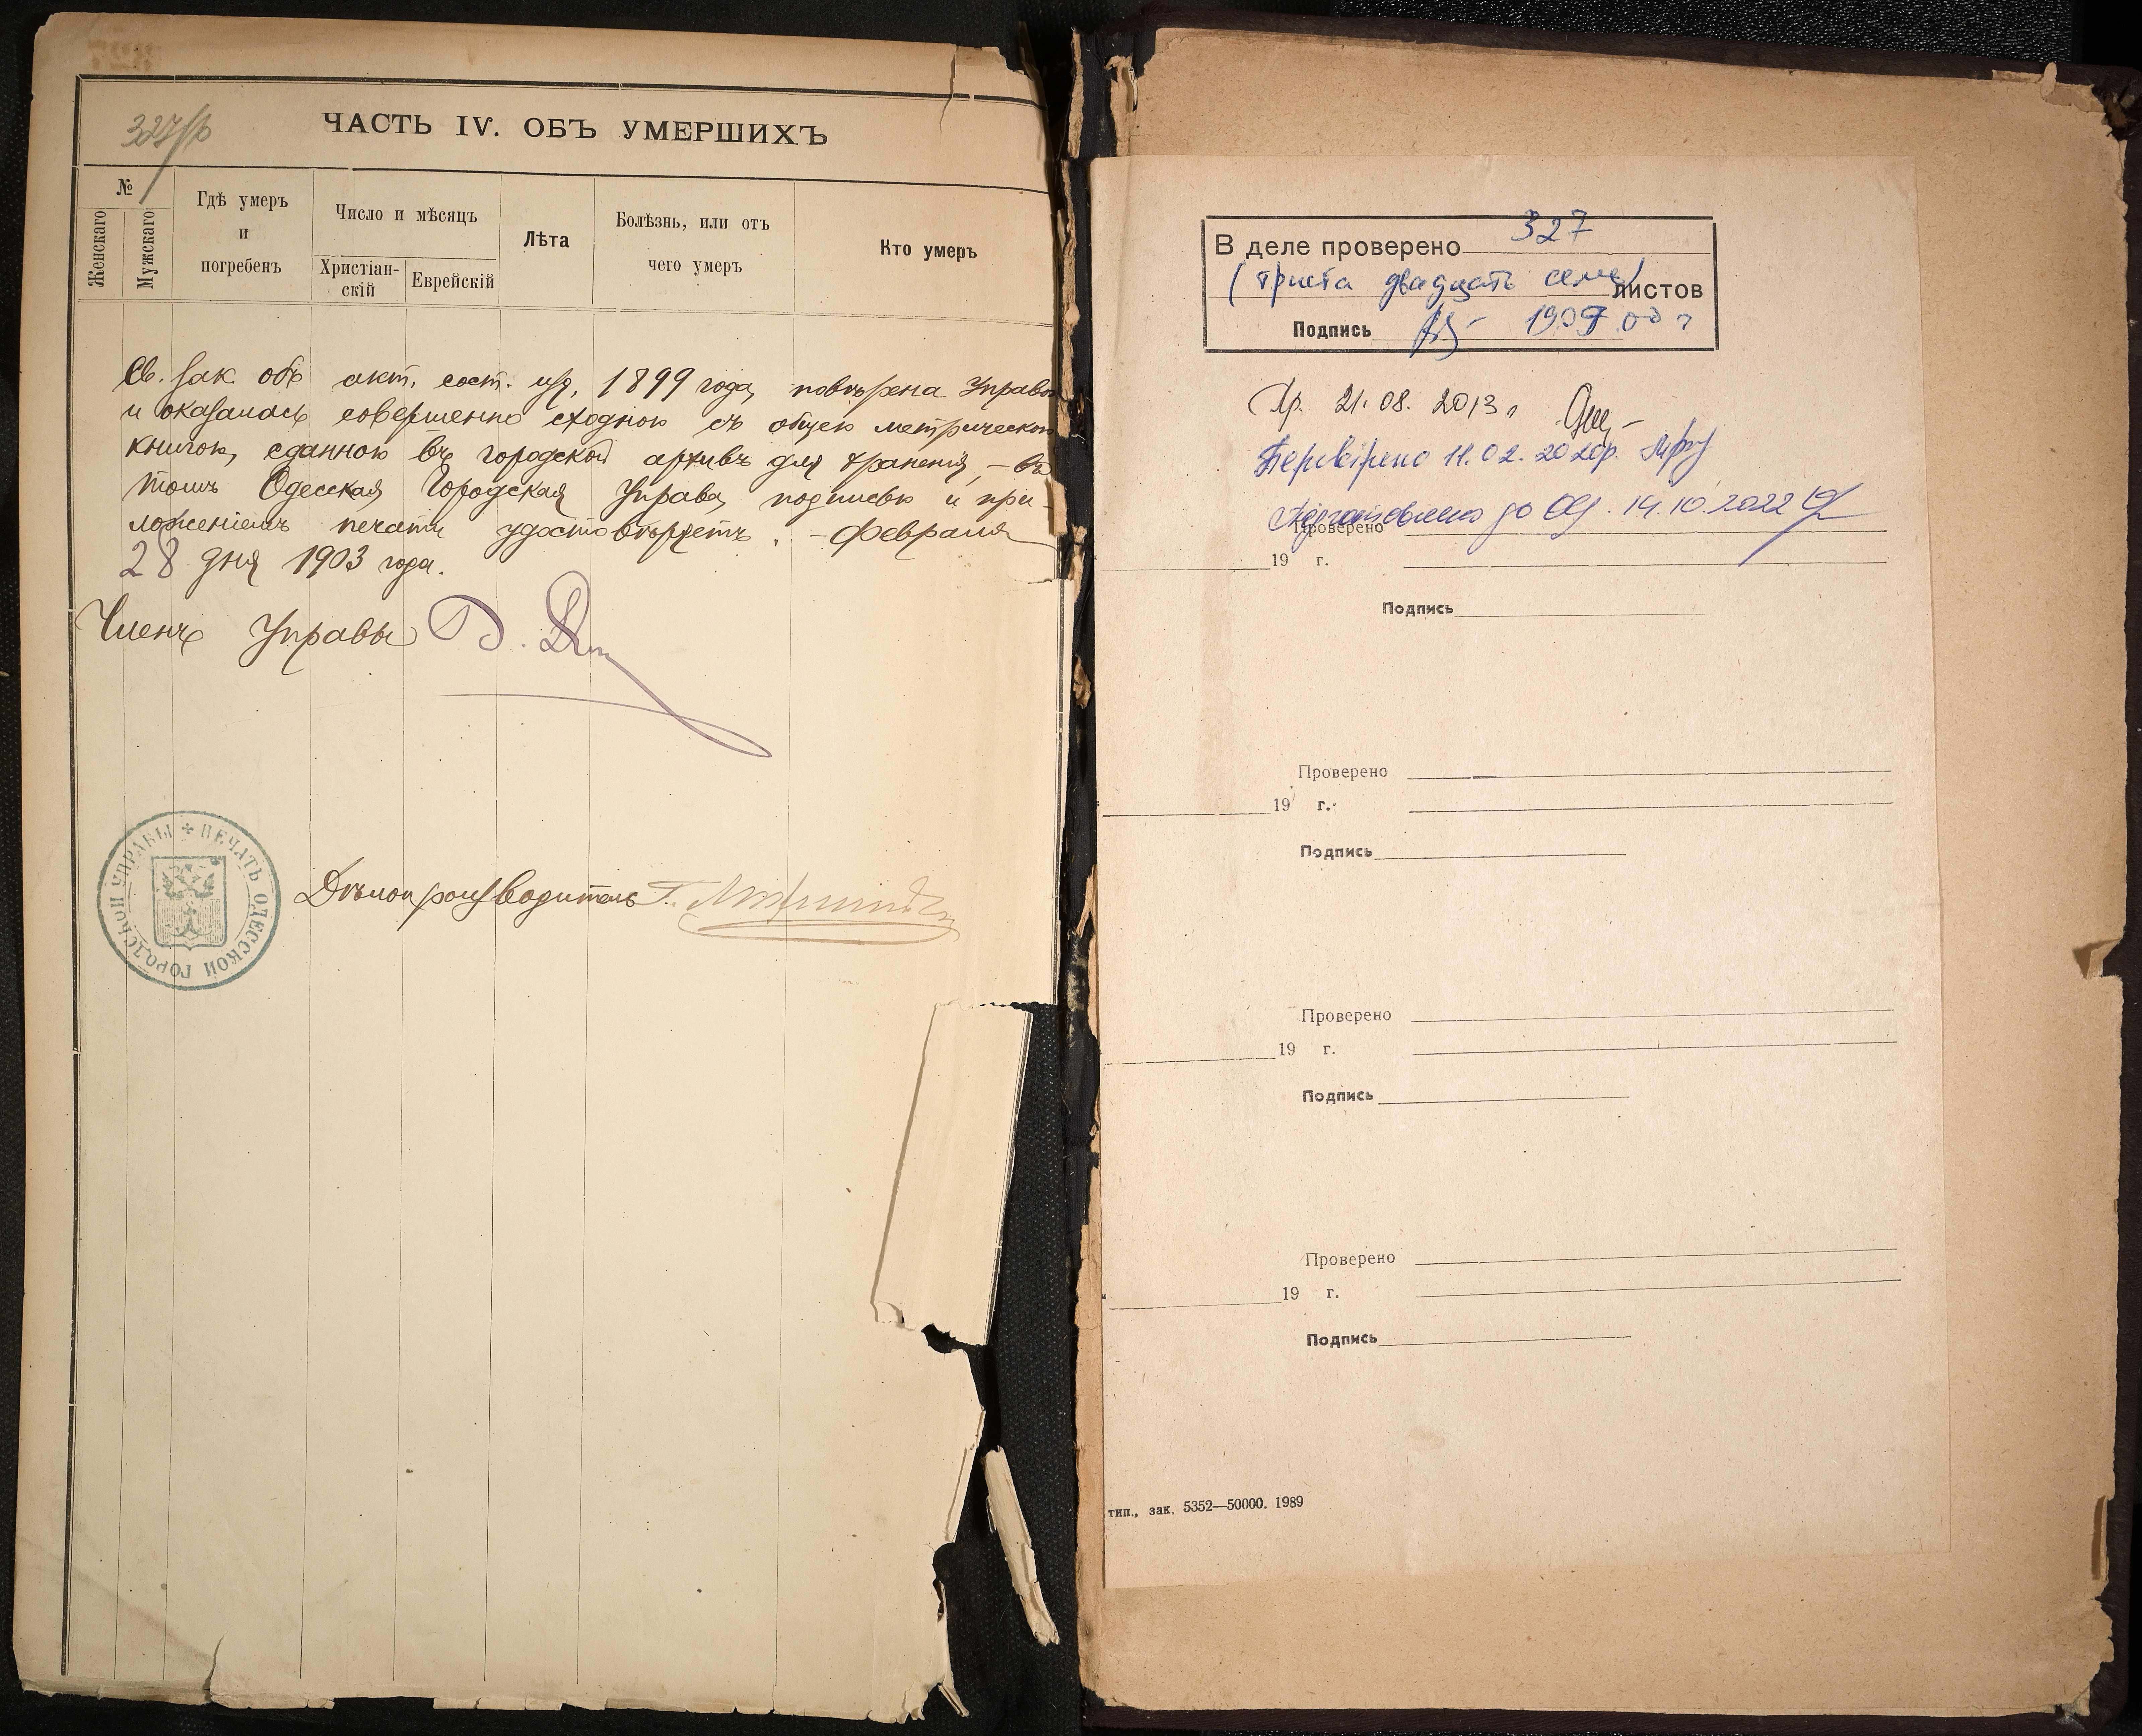 327/р
ЧАСТЬ IV. ОБЪ УМЕРШИХЪ
№
Женскаго
Мужскаго
Гдѣ умеръ
и
погребенъ
Число и мѣсяцъ
Христіан-
скій
Еврейскій
Лѣта
Болѣзнь, или отъ
чего умеръ
Кто умеръ
Св. зак. объ акт. сост. изд. 1899 года, повѣрена Управою
и оказалась совершенно сходною съ общею метрическою
книгою, сданною въ городской архивъ для храненія, – въ
томъ Одесская Городская Управа, подписью и при-
ложеніемъ печати удостовѣряетъ. – Февраля
28 дня 1903 года.
Членъ Управы
ПЕЧАТЬ ОДЕССКОЙ ГОРОДСКОЙ УПРАВЫ
Дѣлопроизводитель
В деле проверено 327
(триста двадцать семь) листов
Подпись
21.08.2013г
Перевірено 11.02.2020р.
Підготовлено до 14.10.2022
Проверено
19 г.
Подпись
Проверено
19 г.
Подпись
Проверено
19 г.
Подпись
Проверено
19 г.
Подпись
тип., зак. 5352—50000. 1989